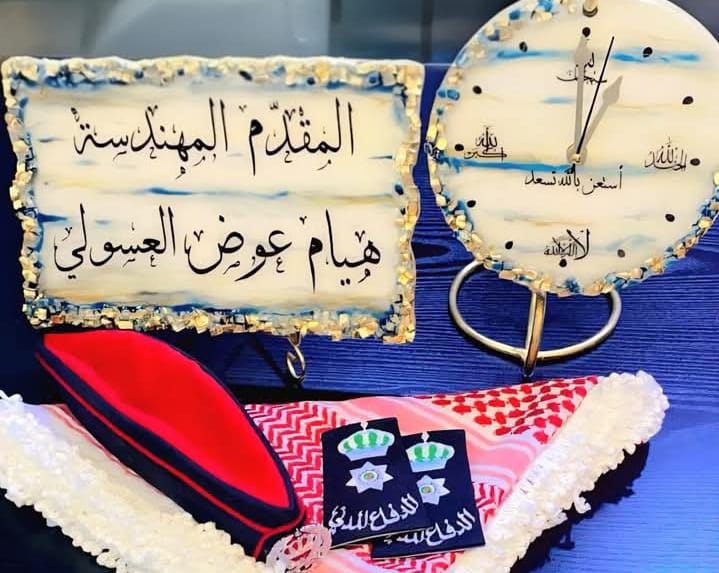 المقدّم المهندسة
هيام عوض العسولي
سبحان الله
الله أكبر
الحمد لله
أستعن بالله تسعد
لا إله إلا الله
الدفاع المدني
الدفاع المدني